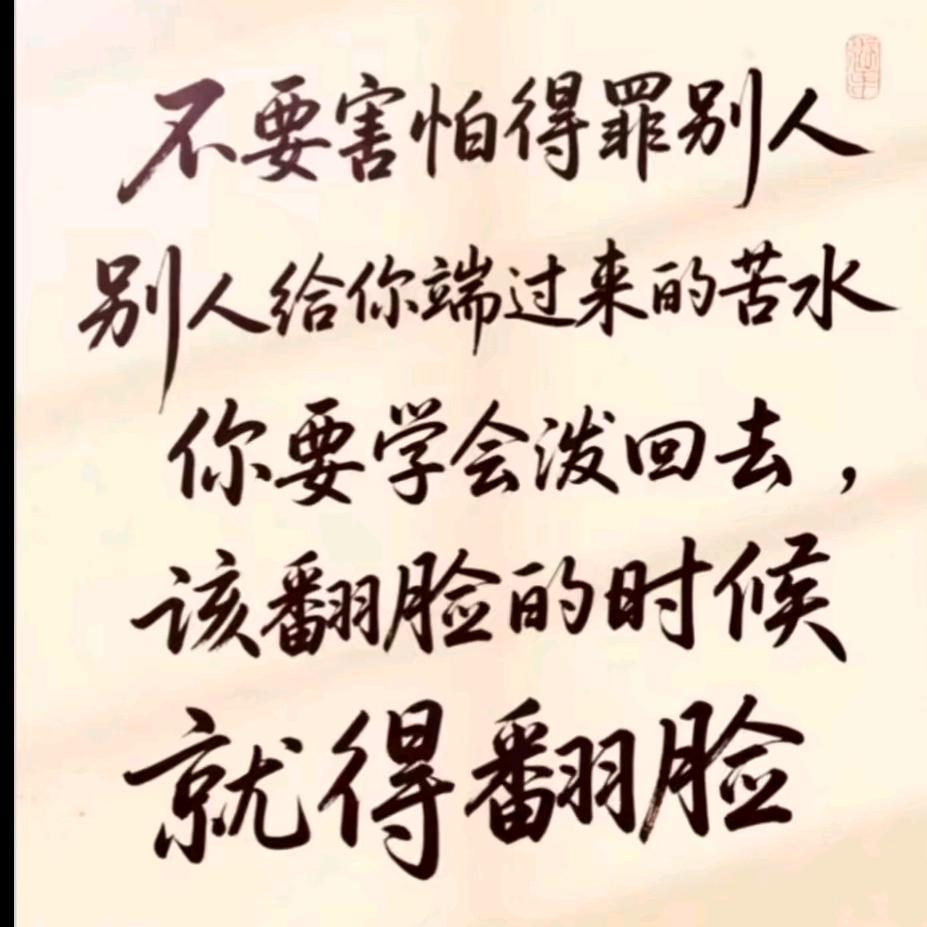 不要害怕得罪别人
别人给你端过来的苦水
你要学会泼回去，
该翻脸的时候
就得翻脸